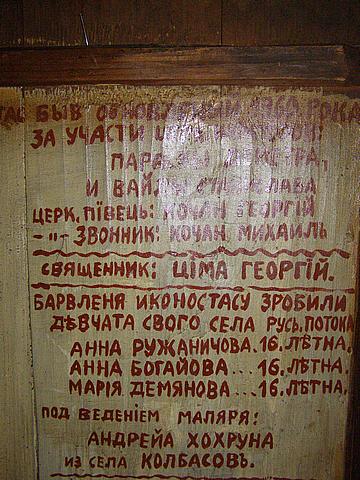 БЫВ ОБНОВЛЕНЫЙ 1960 РОКА
ЗА УЧАСТИ
И ВАЙДЫ
ЦЕРК. ПІВЕЦЬ: КОЧАН ГЕОРГІЙ
-"- ЗВОННИК: КОЧАН МИХАИЛЬ
СВЯЩЕННИК: ЦІМА ГЕОРГІЙ.
БАРВЛЕНЯ ИКОНОСТАСУ ЗРОБИЛИ
ДѢВЧАТА СВОГО СЕЛА РУСЬ. ПОТОКА
АННА РУЖАНИЧОВА. 16. ЛѢТНА.
АННА БОГАЙОВА ... 16. ЛѢТНА.
МАРІЯ ДЕМЯНОВА ... 16. ЛѢТНА.
ПОД ВЕДЕНІЕМ МАЛЯРА:
АНДРЕЙА ХОХРУНА
ИЗ СЕЛА КОЛБАСОВЪ.